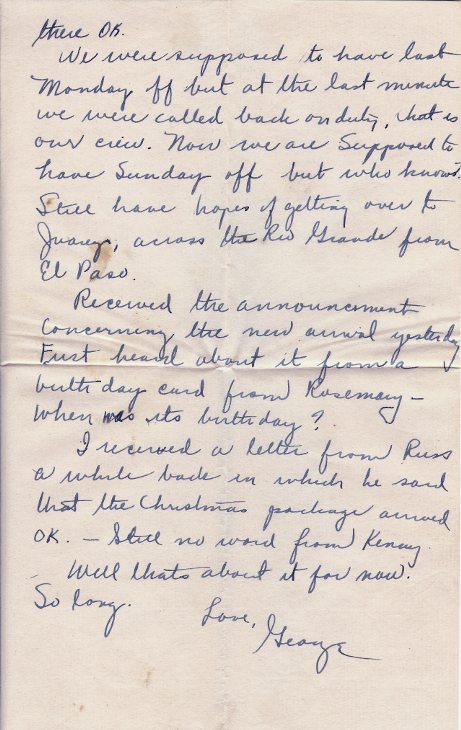 there OK.
We were supposed to have last
Monday off but at the last minute
we were called back on duty, that is
our crew. Now we are Supposed to
have Sunday off but who knows?
Still have hopes of getting over to
Juarez, across the Rio Grande from
El Paso.
Received the announcement
Concerning the new arrival yesterday
First heard about it from a
birthday card from Rosemary -
When was its birthday?
I received a letter from Russ
a while back in which he said
that the Christmas package arrived
OK. - Still no word from Kenny.
Well thats about it for now.
So long.
Love,
George